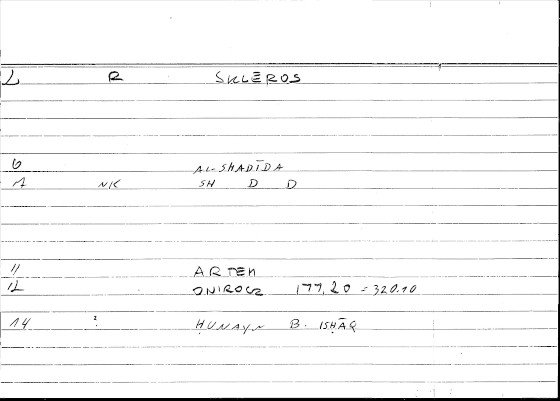 L R SKLĒROS
6 AL-SHADĪDA
1 NK SH D D
11 ARTEM
12 ONIROCR 177,20 = 320.10
14 ḤUNAYN B. ISḤĀQ